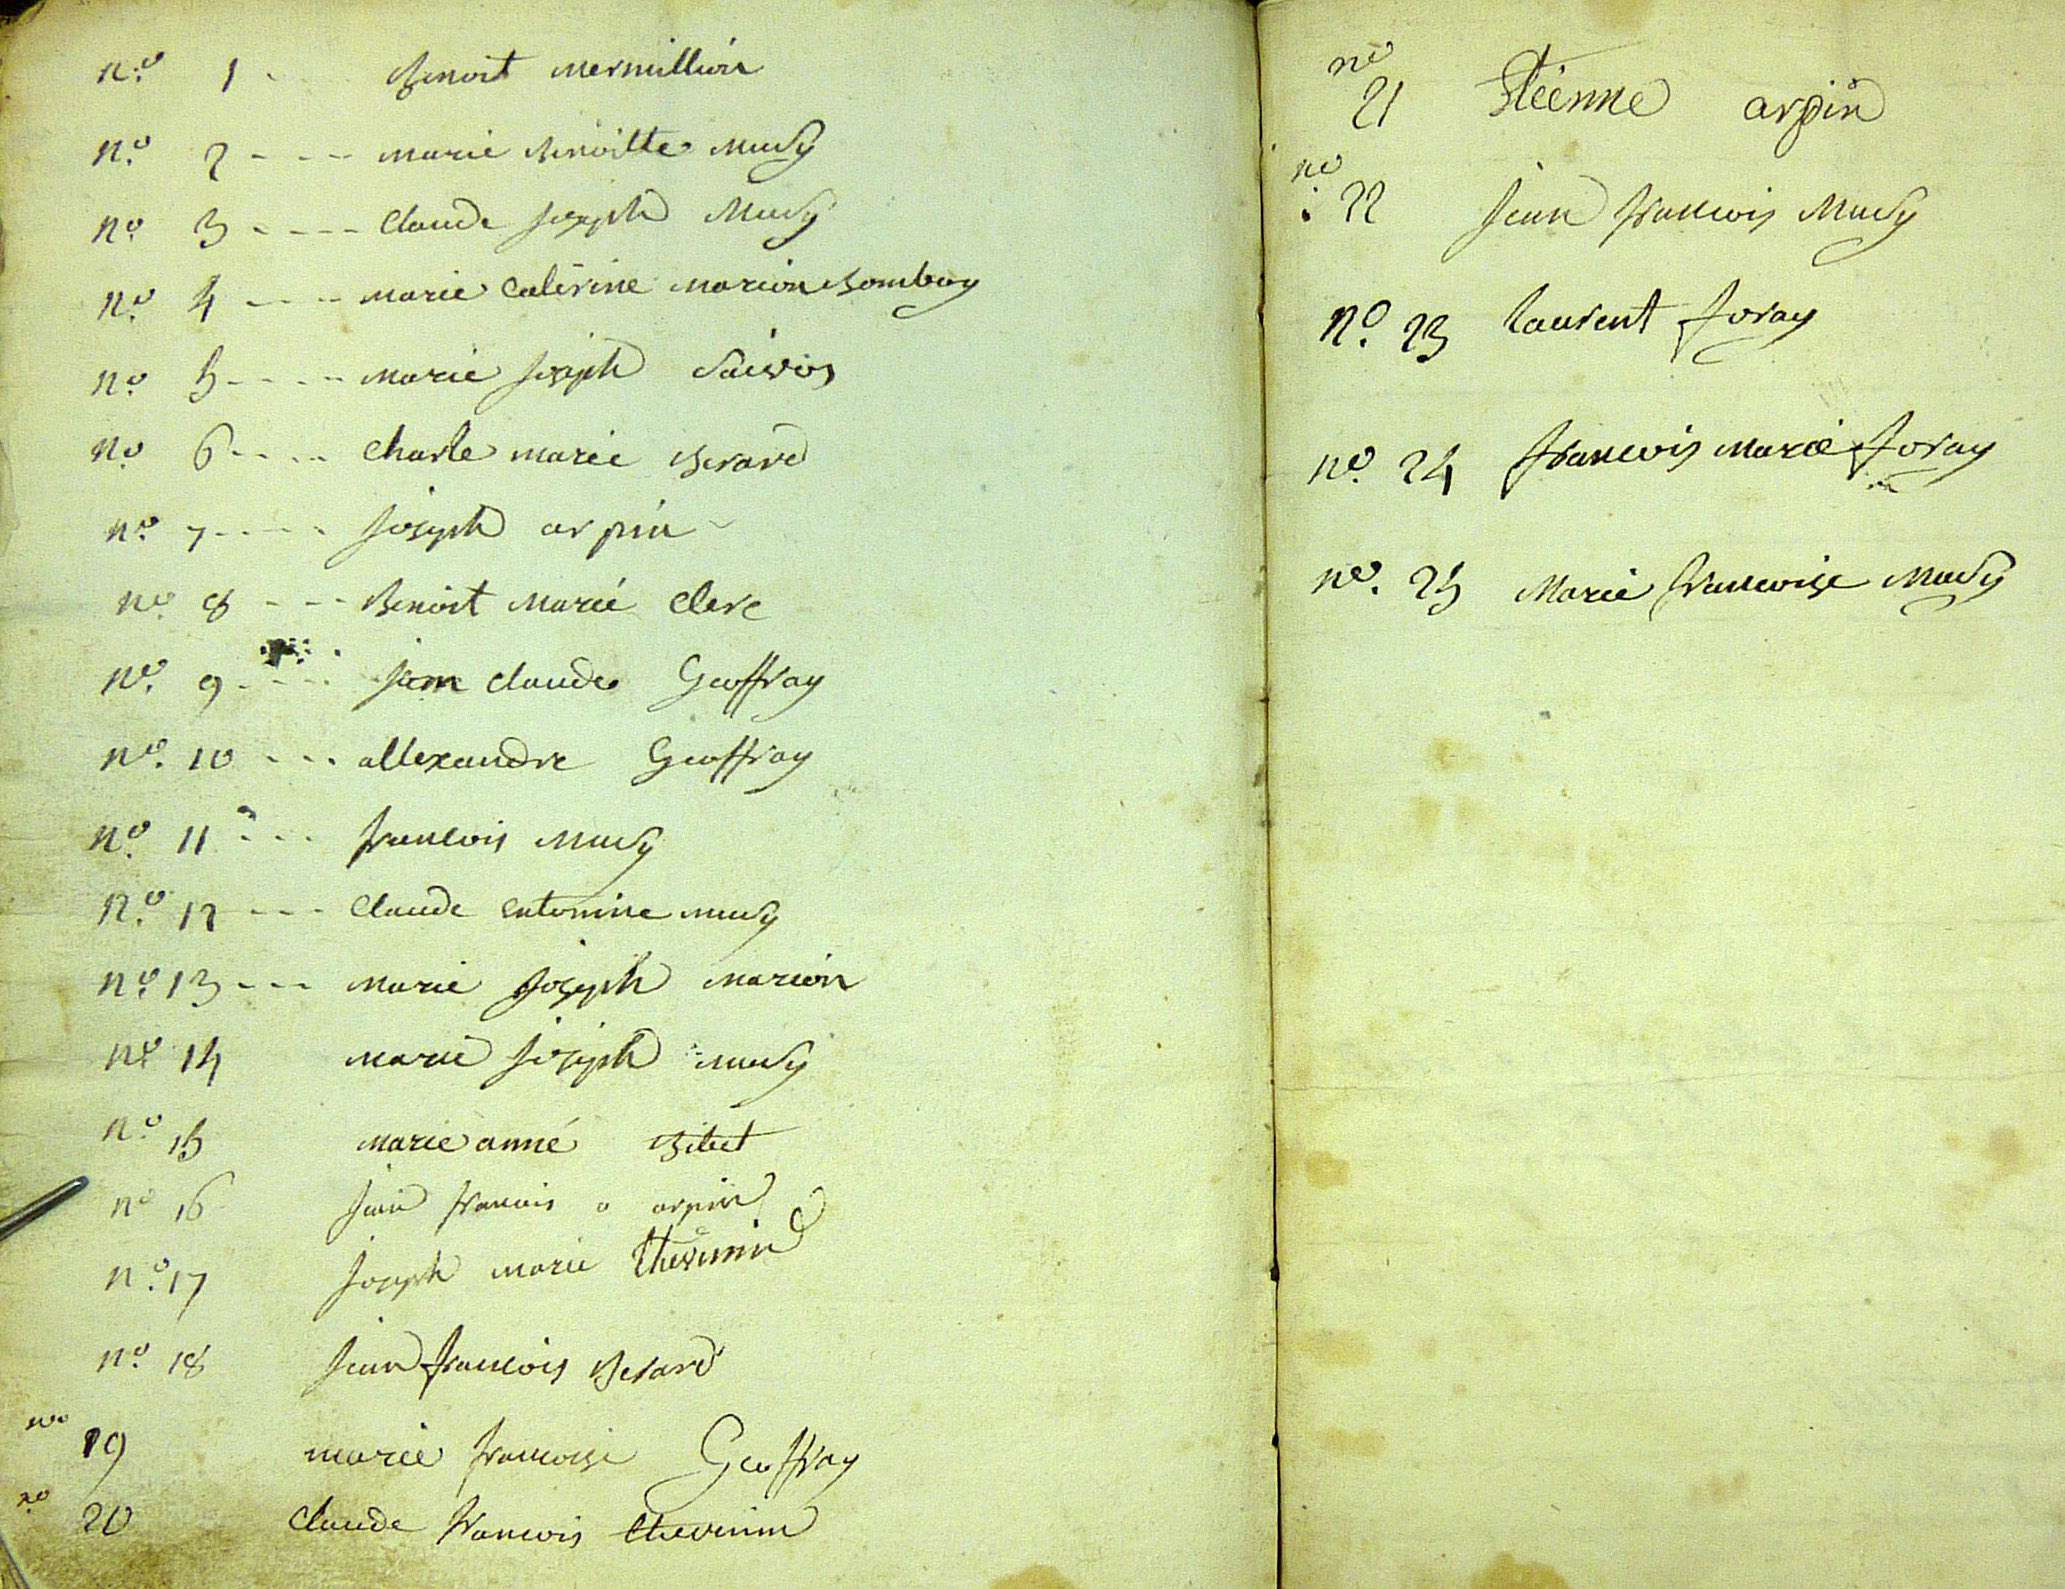 n.o 1 - Benoit mermillion
n.o 2 - - - - marie Benoitte Mudy
n.o 3 - - - - - Claude Joseph Mudy
n.o 4 - - - - marie Caterine marion Bombuy
n.o 5 - - - - - marie Joseph
n.o 6 - - - - Charle marie Berard
n.o 7 - - - - Joseph arpin
n.o 8 - - - Benoit Marie Clerc
n.o 9 - - - - jean claude Geoffray
n.o 10 - - - allexandre Geoffray
n.o 11 - - - francois Mudy
n.o 12 - - - Claude entonine mudy
n.o 13 - - - marie Joseph marion
n.o 14 marie Joseph mudy
n.o 15 marie anne Bibet
n.o 16 Jean francois arpin
n.o 17 Joseph marie thevenin
n.o 18 Jean francois Berard
no 19 marie francoise Geoffray
no 20 Claude francois thevenin
no 21 Etienne arpin
no 22 Jean francois Mudy
n.o 23 laurent foray
n.o 24 francois marie foray
n.o 25 Marie francoise Mudy